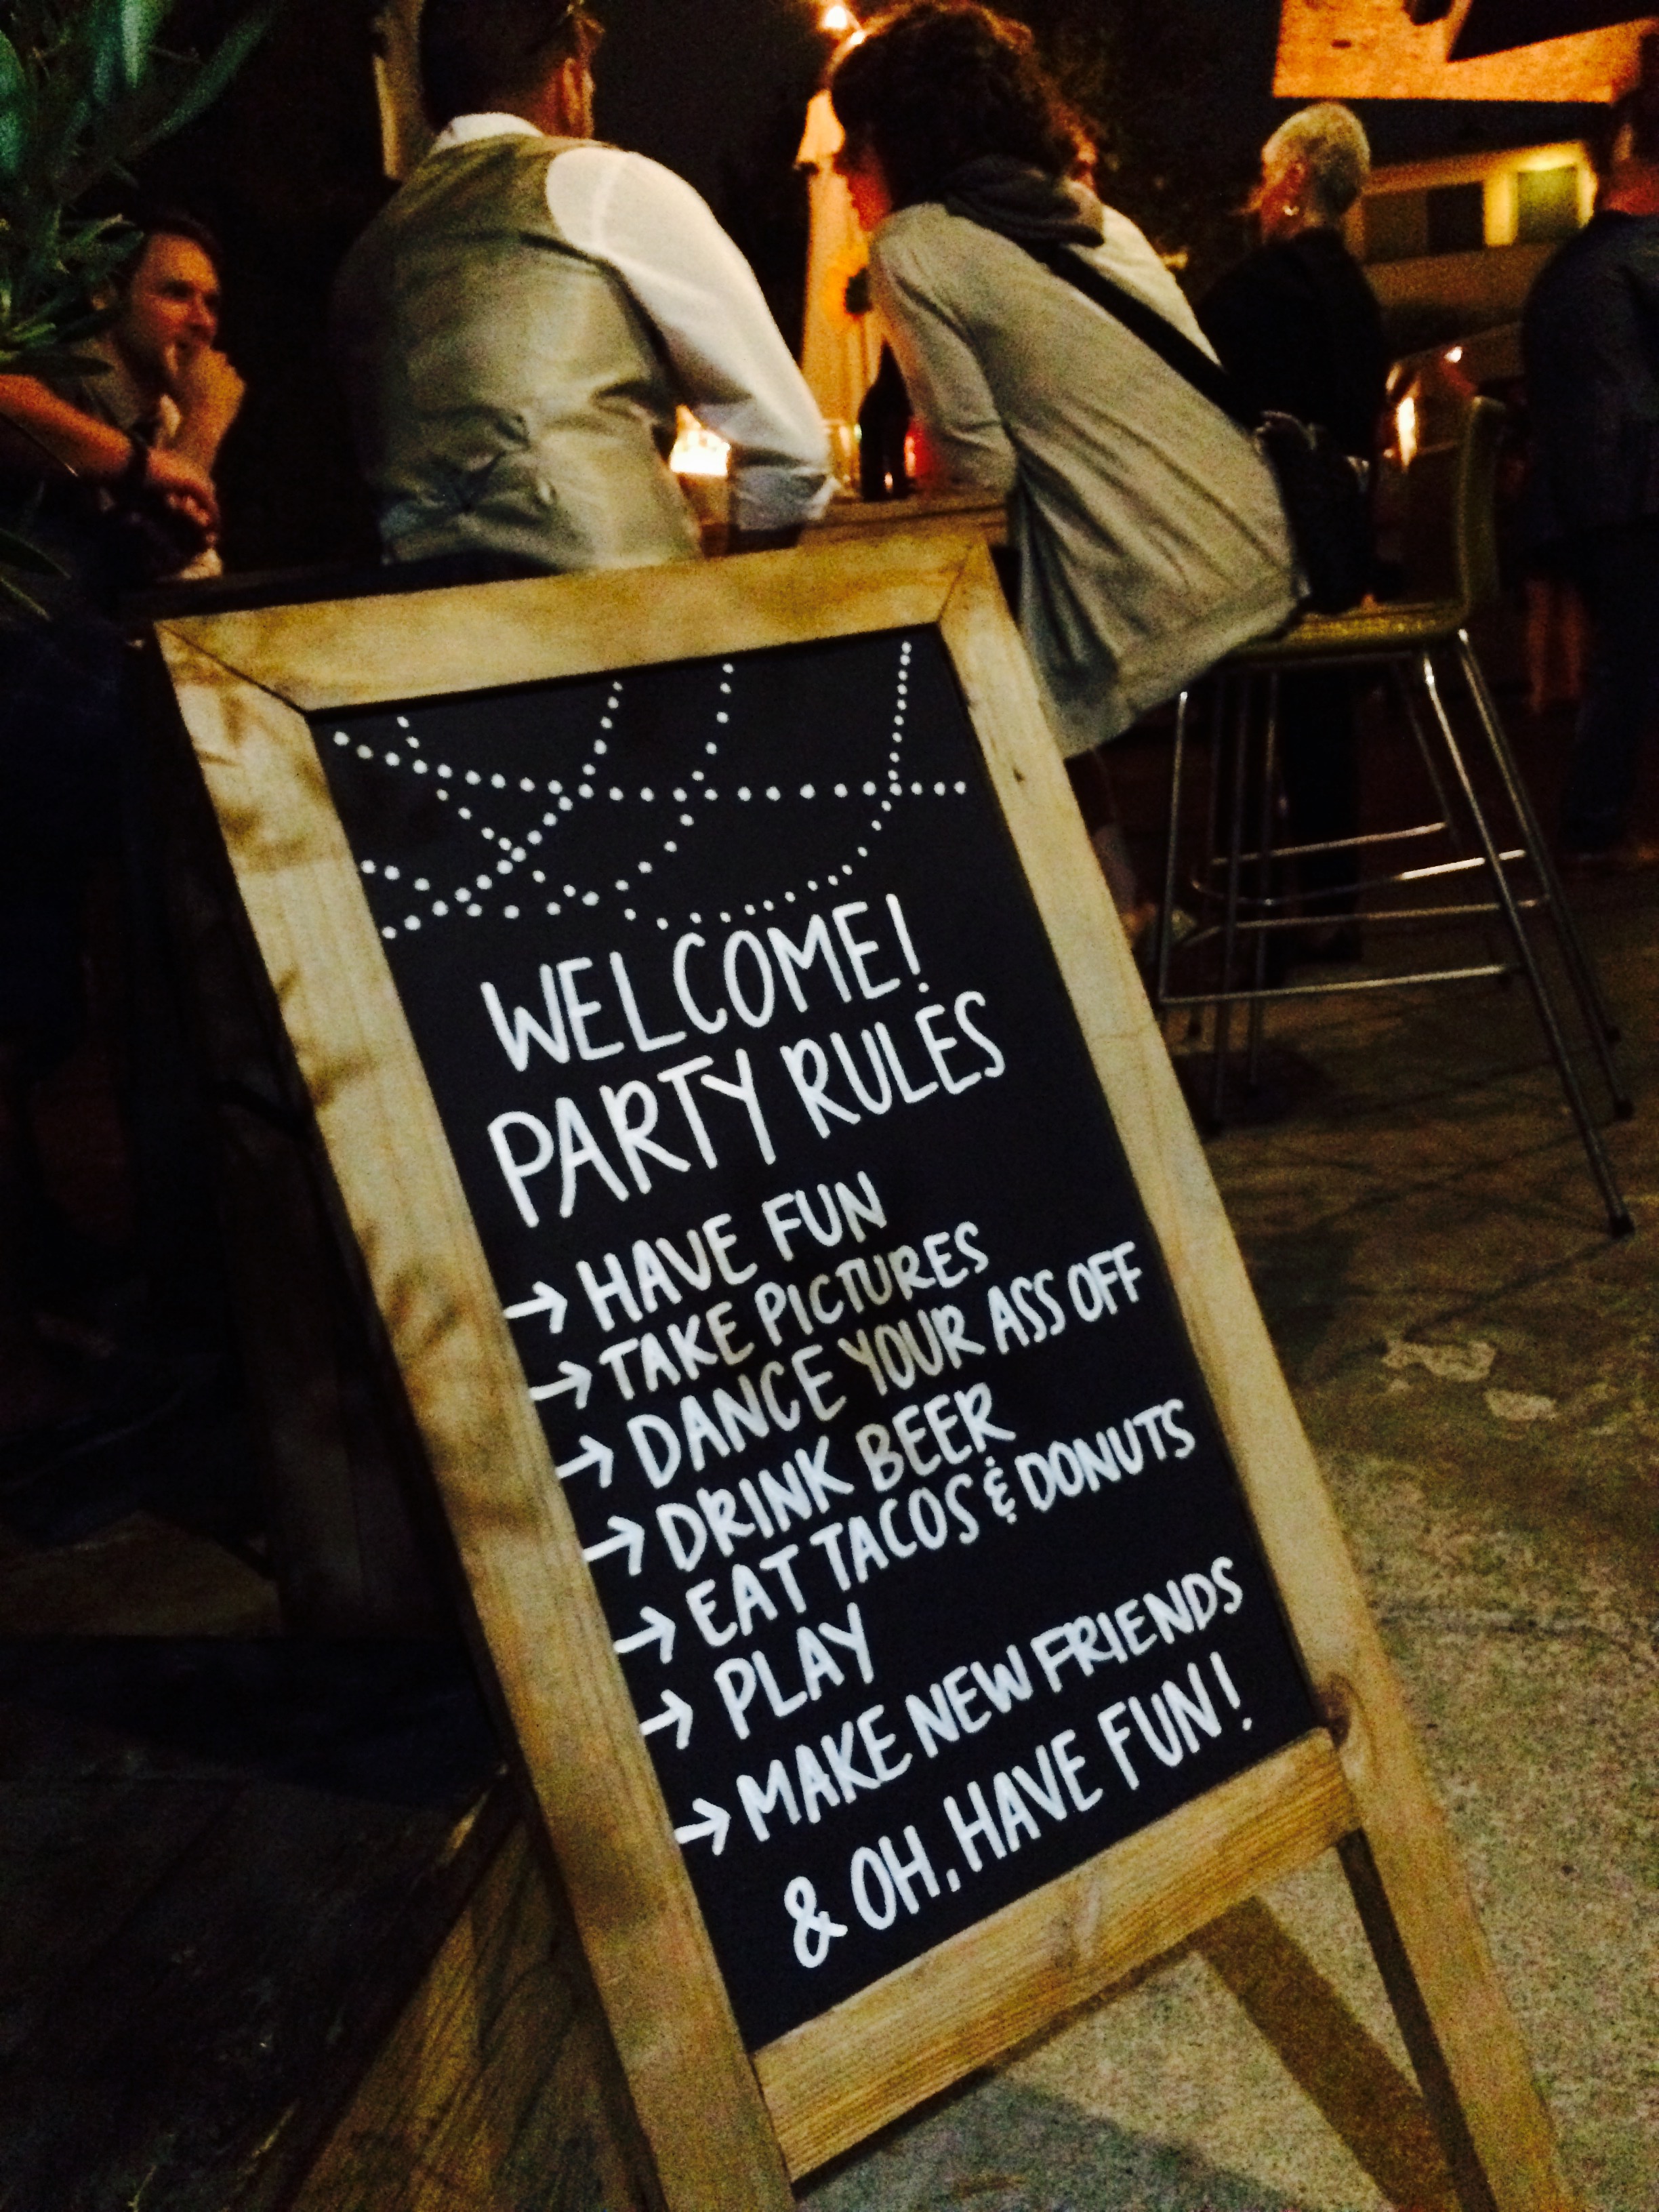 WELCOME!
PARTY RULES
→ HAVE FUN
→ TAKE PICTURES
→ DANCE YOUR ASS OFF
→ DRINK BEER
→ EAT TACOS & DONUTS
→ PLAY
→ MAKE NEW FRIENDS
& OH, HAVE FUN!